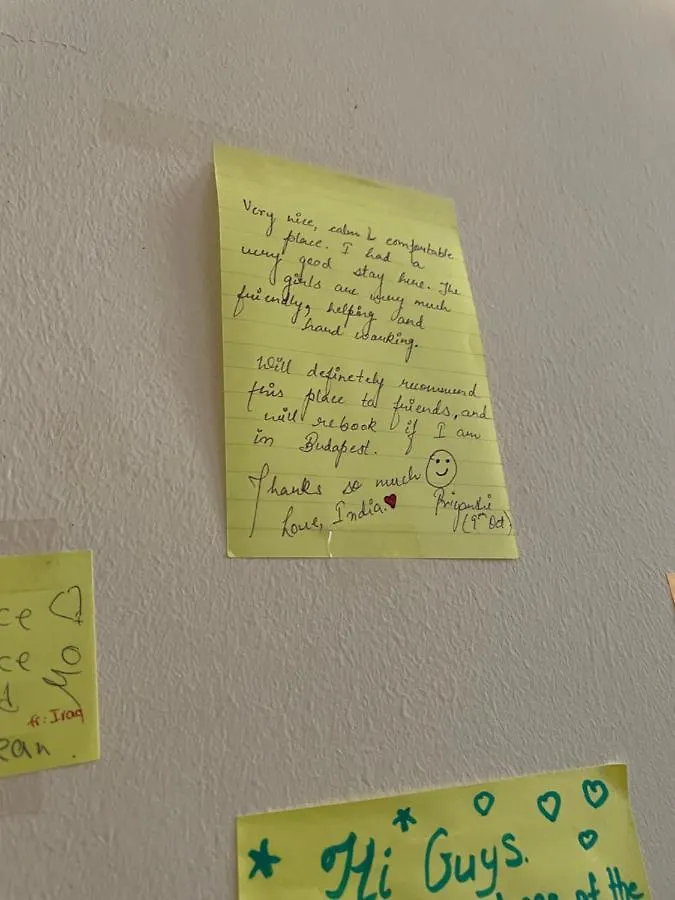 Very nice, calm & comfortable
place. I had a
very good stay here. The
girls are very much
friendly, helping and
hard working.
Will definetely recommend
this place to friends, and
will rebook if I am
in Budapest.
Thanks so much
Love, India.
(9th Oct)
ce
ce
Mo
fr: Iraq
ean.
Hi Guys.
of the